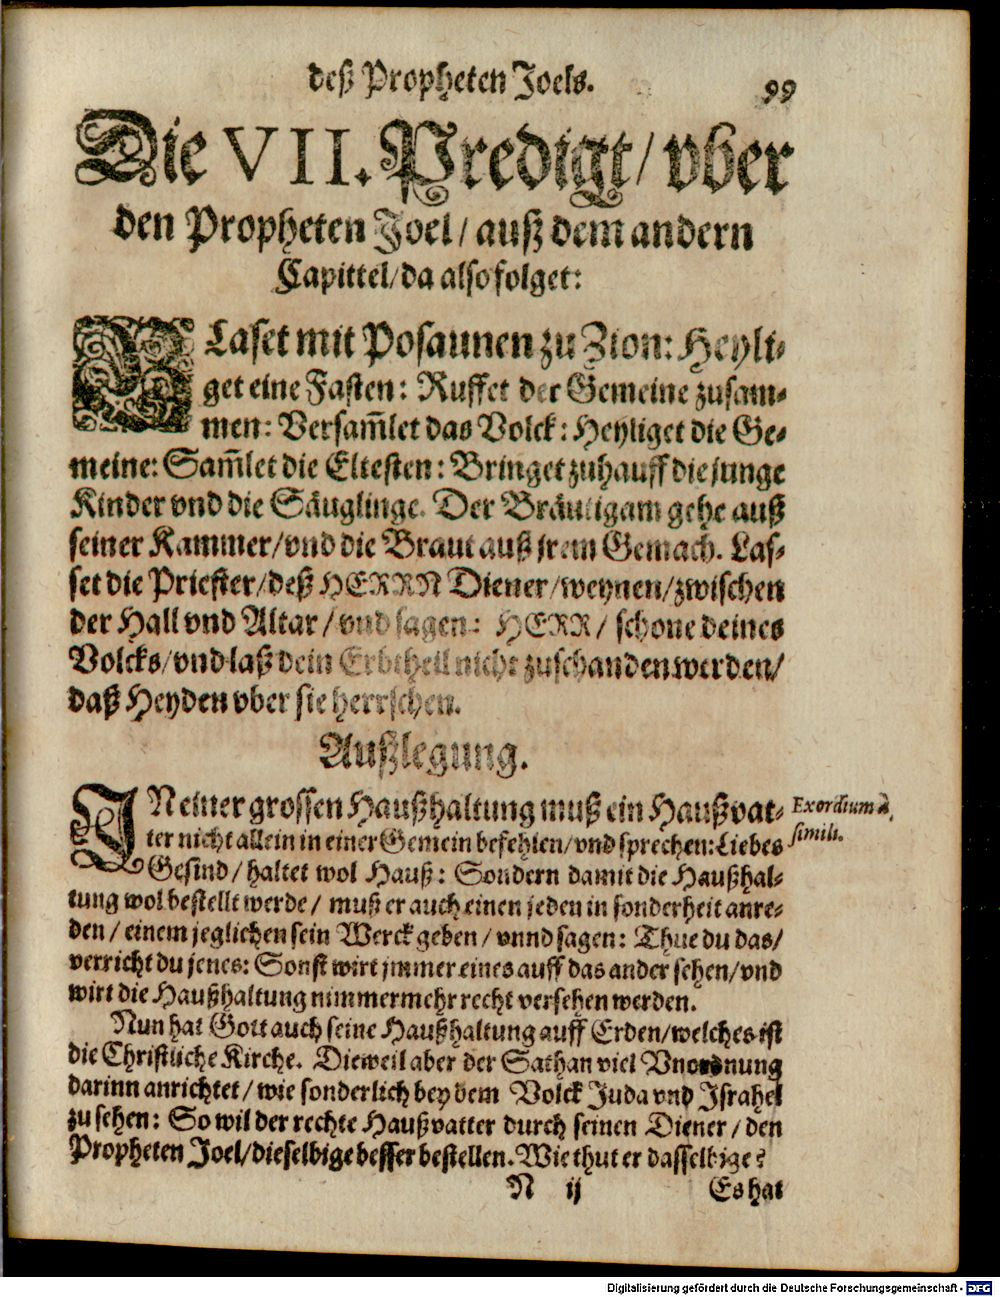 deß Propheten Joels. 99
Die VII. Predigt/ vber
den Propheten Joel/ auß dem andern
Capittel/ da also folget:
BLaset mit Posaunen zu Zion: Heyli-
get eine Fasten: Ruffet der Gemeine zusam-
men: Versam̃let das Volck: Heyliget die Ge-
meine: Sam̃let die Eltesten: Bringet zuhauff die junge
Kinder vnd die Säuglinge. Der Bräutigam gehe auß
seiner Kammer/ vnd die Braut auß jrem Gemach. Las-
set die Priester/ deß HERRN Diener/ weynen/ zwischen
der Hall vnd Altar/ vnd sagen: HERR/ schone deines
Volcks/ vnd laß dein Erbtheil nicht zuschanden werden/
daß Heyden vber sie herrschen.
Außlegung.
IN einer grossen Haußhaltung muß ein Haußvat-
ter nicht allein in einer Gemein befehlen/ vnd sprechen: Liebes
Gesind/ haltet wol Hauß: Sondern damit die Haußhal-
tung wol bestellt werde/ muß er auch einen jeden in sonderheit anre-
den/ einem jeglichen sein Werck geben/ vnnd sagen: Thue du das/
verricht du jenes: Sonst wirt jmmer eines auff das ander sehen/ vnd
wirt die Haußhaltung nimmermehr recht versehen werden.
Exordium à
simili.
Nun hat Gott auch seine Haußhaltung auff Erden/ welches ist
die Christliche Kirche. Dieweil aber der Sathan viel Vnordnung
darinn anrichtet/ wie sonderlich bey dem Volck Juda vnd Israhel
zu sehen: So wil der rechte Haußvatter durch seinen Diener/ den
Propheten Joel/ dieselbige besser bestellen. Wie thut er dasselbige?
N ij Es hat
Digitalisierung gefördert durch die Deutsche Forschungsgemeinschaft - DFG